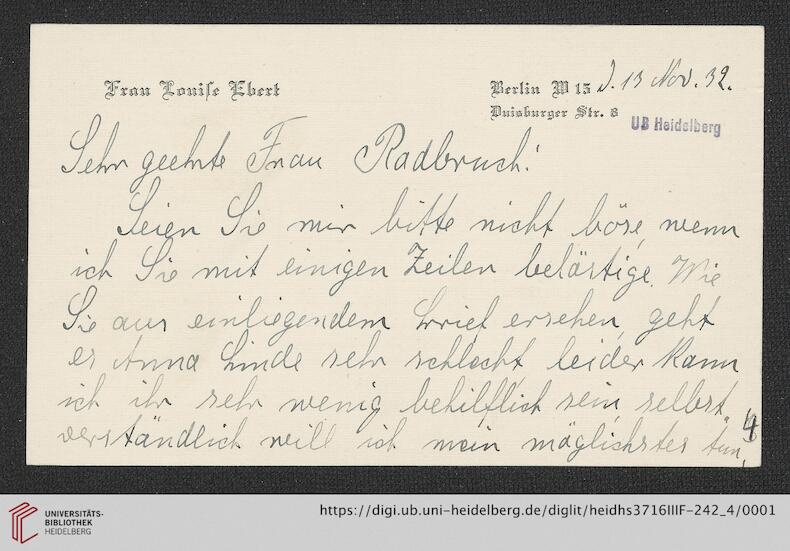 Frau Louise Ebert
Berlin W 15 d. 13 Nov. 32.
Duisburger Str. 8
UB Heidelberg
Sehr geehrte Frau Radbruch!
Seien Sie mir bitte nicht böse, wenn
ich Sie mit einigen Zeilen belästige. Wie
Sie aus einliegendem Brief ersehen, geht
es Anna Linde sehr schlecht, leider kann
ich ihr sehr wenig behilflich sein, selbst
verständlich will ich mein möglichstes tun,
4
UNIVERSITÄTS-
BIBLIOTHEK
HEIDELBERG
https://digi.ub.uni-heidelberg.de/diglit/heidhs3716IIIF-242_4/0001